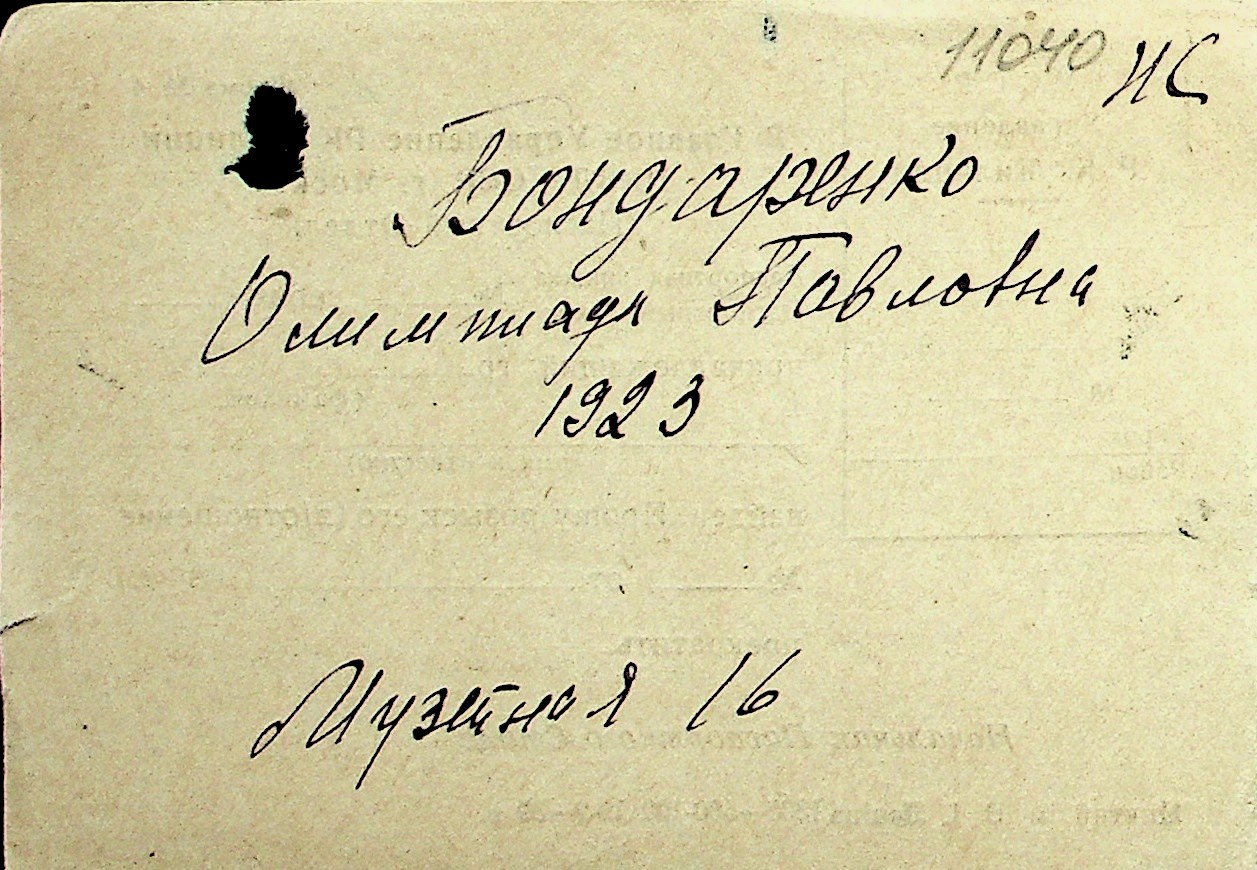 11040 ИС
Бондаренко
Олимпиада Павловна
1923
Музейная 16